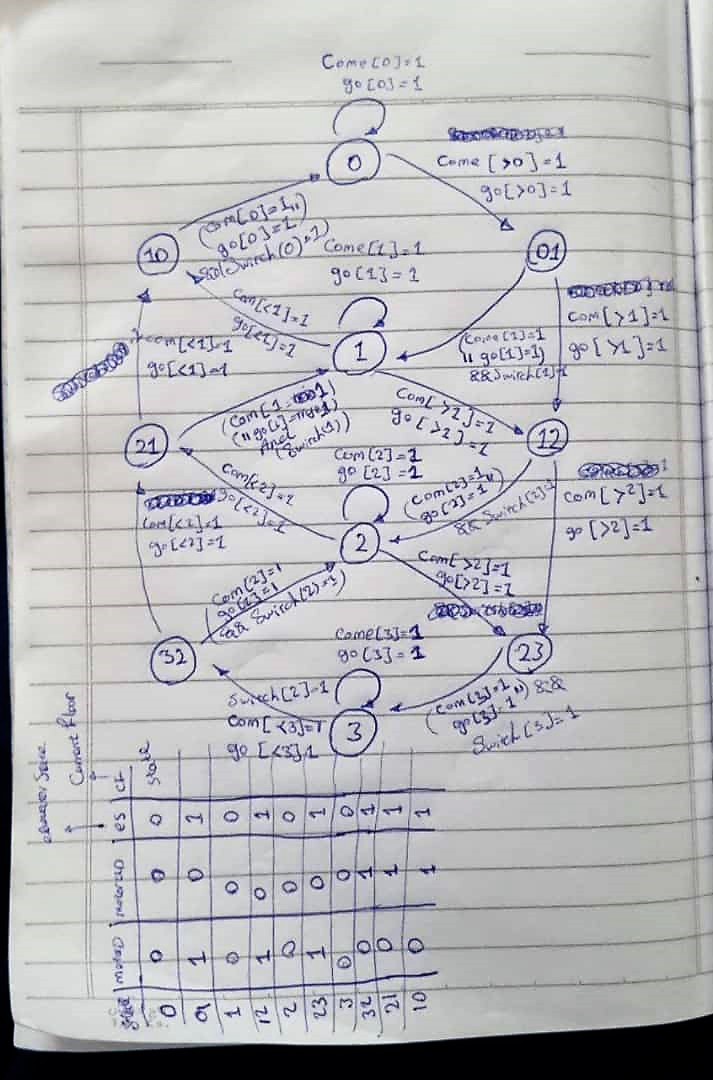 Come[0]=1
go[0]=1
0
Come [>0]=1
go[>0]=1
(Com[0]=1,,
go[0]=1)
Switch(0)=1)
10
01
Come[1]=1
go[1]=1
Com[<1]=1
go[<1]=1
1
(Come[1]=1
,, go[1]=1)
&&Switch[1]=1
Com[>1]=1
go[>1]=1
com[<1]=1
go[<1]=1
(Com[1
And
(Switch1))
Com[>2]=1
go[>2]=1
21
12
Com[2]=1
go[2]=1
Com[2]=1
go[<2]=1
(Com[2]=1,,
go[2]=1)
&& Switch[2]=1
Com[>2]=1
go[>2]=1
Com[<2]=1
go[<2]=1
2
Com[>2]=1
go[>2]=1
(Com[2]=1
go[2]=1
&& Switch(2)=1)
32
23
Come[3]=1
go[3]=1
Switch[2]=1
Com[<3]=1
go [<3]1
3
(Com[3]=1
go[3]=1,,) &&
Switch[3]=1
Current floor
State motorD motorUP es cf
0 0 0 0 State
01 1 0 1
1 0 0 0
12 1 0 1
2 0 0 0
23 1 0 1
3 0 0 0
32 0 1 1
21 0 1 1
10 0 1 1